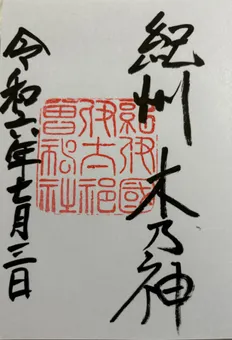 紀州 木乃神
紀伊國
伊太祁
曾神社
令和六年七月三日